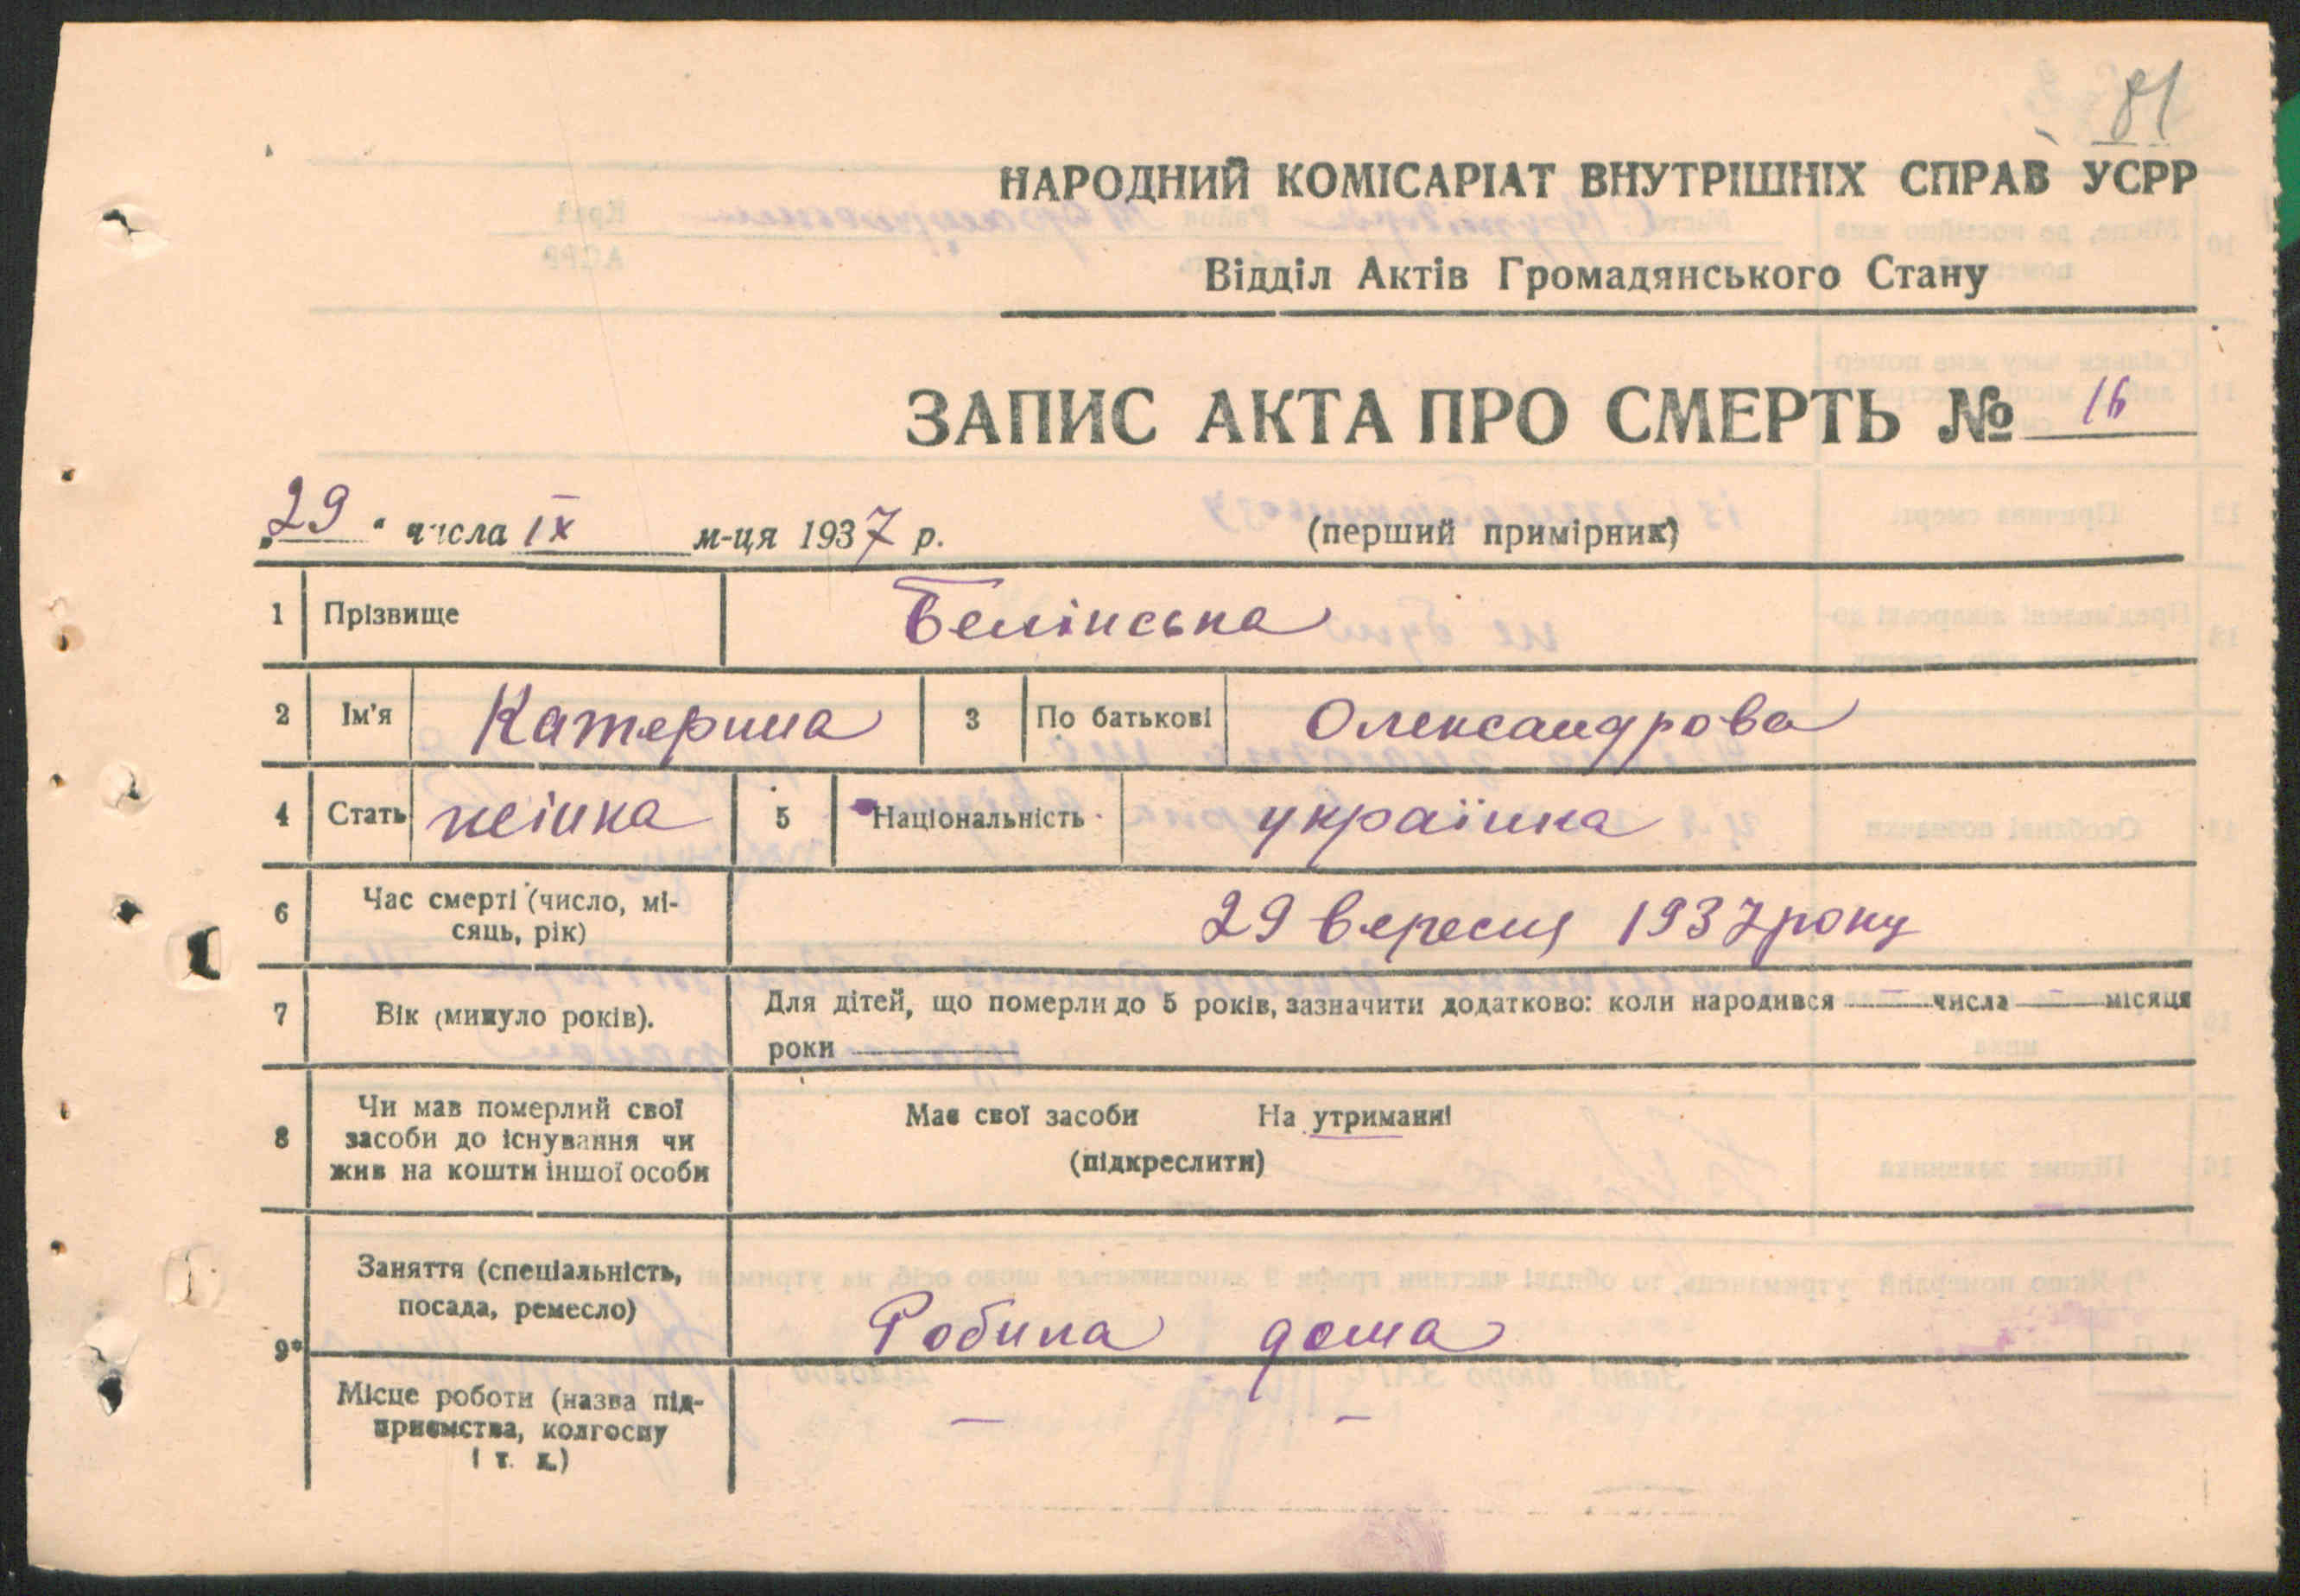 81
НАРОДНИЙ КОМІСАРІАТ ВНУТРІШНІХ СПРАВ УСРР
Відділ Актів Громадянського Стану
ЗАПИС АКТА ПРО СМЕРТЬ № 16
"29" числа IX м-ця 1937 р. (перший примірник)
1 Прізвище Белінська
2 Ім'я Катерина 3 По батькові Олександрова
4 Стать жінка 5 Національність українка
6 Час смерті (число, мі-
сяць, рік) 29 вересня 1937 року
7 Вік (минуло років). Для дітей, що померли до 5 років, зазначити додатково: коли народився — числа — місяця
роки
8 Чи мав померлий свої
засоби до існування чи
жив на кошти іншої особи
Має свої засоби На утриманні
(підкреслити)
9* Заняття (спеціальність,
посада, ремесло) Робила дома
Місце роботи (назва під-
приємства, колгоспу
і т. д.) — —